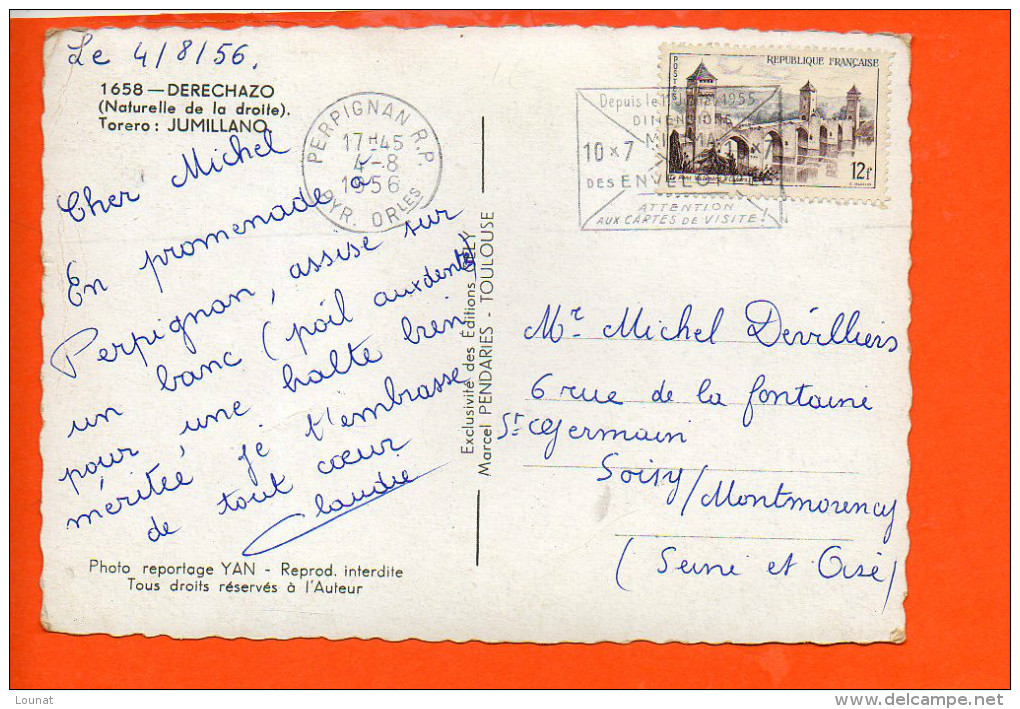 Le 4/8/56.
1658 — DERECHAZO
(Naturelle de la droite).
Torero : JUMILLANO
Cher Michel
En promenade à
Perpignan, assise sur
un banc (poil aux dents)
pour une halte bien
méritée je t'embrasse
de tout cœur
Claudie
Photo reportage YAN - Reprod. interdite
Tous droits réservés à l'Auteur
PERPIGNAN R.P.
17H45
4-8
1956
PYR. ORLES
Exclusivité des Editions GELY
Marcel PENDARIES - TOULOUSE
POSTES
REPUBLIQUE FRANÇAISE
12f
Depuis le 1er Juillet 1955
DIMENSIONS
MINIMA
10 x 7
x 7
DES ENVELOPPES
ATTENTION
AUX CARTES DE VISITE !
Mr Michel Devilliers
6 rue de la fontaine
St Germain
Soisy/Montmorency
(Seine et Oise)
Lounat
www.delcampe.net